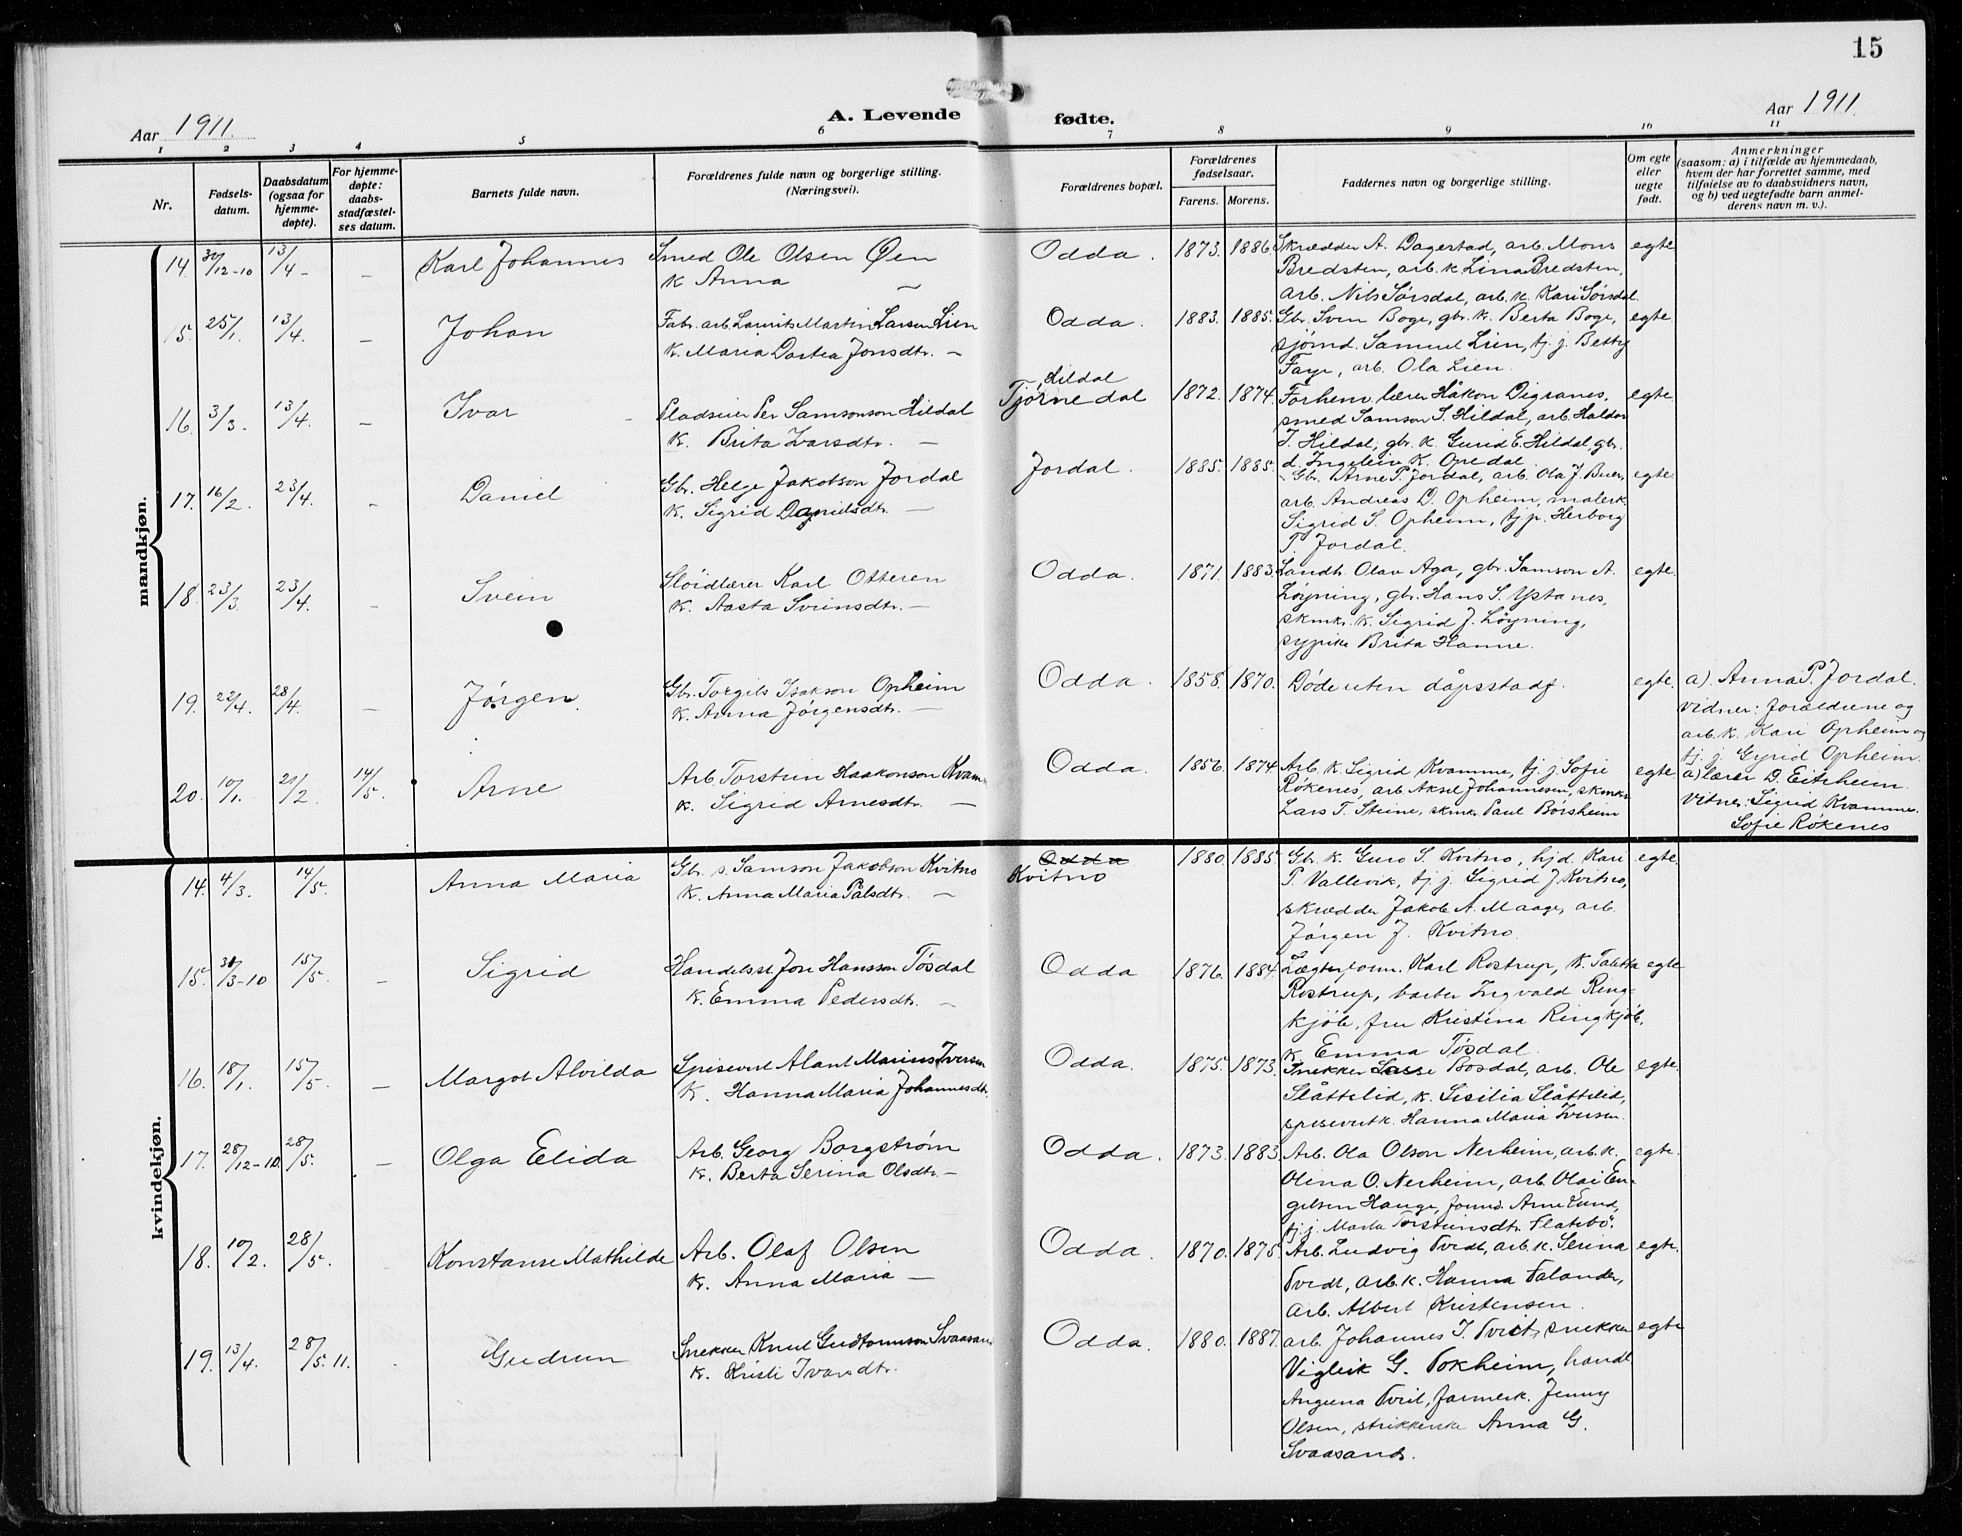 15
Aar 1911.
A. Levende fødte.
Aar 1911.
1 2 3 4 5 6 7 8 9 10 11
Nr.
Fødsels-
datum.
Daabsdatum
(ogsaa for
hjemme-
døpte).
For hjemme-
døpte:
daabs-
stadfæstel-
ses datum.
Barnets fulde navn.
Forældrenes fulde navn og borgerlige stilling.
(Næringsvei).
Forældrenes bopæl.
Forældrenes
fødselsaar.
Farens. Morens.
Faddernes navn og borgerlige stilling.
Om egte
eller
uegte
født.
Anmerkninger
(saasom: a) i tilfælde av hjemmedaab,
hvem der har forrettet samme, med
tilføielse av to daabsvidners navn,
og b) ved uegtefødte barn anmel-
derens navn m. v.).
mandkjøn.
14. 30/12-10 13/4 - - Karl Johannes
Smed Ole Olsen Øen
K Anna -
Odda. 1873. 1886.
Skrædder A. Dagestad, arb. Mons
Bredsten, arb. k Lina Bredsten,
arb. Nils Sørsdal, arb. k. Kari Sørsdal.
egte
15. 25/1. 13/4. - Johan
Fabr. arb. Laurits Martin Larsen Lien
K. Maria Dortea Jonsdtr. -
Odda. 1883. 1885.
Gbr. Sven Boge, gbr. k. Berta Boge,
sjømd. Samuel Lien, tj. j. Betty
Faye, arb. Ola Lien.
egte.
16. 3/3. 13/4. - Ivar
Pladseier Per Samsonson Hildal
K. Brita Larsdtr. -
Hildal
Tjørnedal 1872. 1874.
Forhenv. lærer Håkon Digranes,
smed Samson S. Hildal, arb. Haldor
J. Hildal, gbr. k. Gunid E. Hildal, gbr.
d. Ingelein K. Opedal.
egte.
17. 16/2. 23/4. - Daniel
Gbr. Helge Jakobson Jordal
K. Sigrid Danielsdtr. -
Jordal. 1885. 1885.
Gbr. Arne P. Jordal, arb. Ola J. Buer,
arb. Andreas D. Opheim, malerk.
Sigrid S. Opheim, tj. p. Herborg
T. Jordal.
egte.
18. 23/3. 23/4. - Svein
Sløidlærer Karl Otteren
K. Aasta Sveinsdtr. -
Odda. 1871. 1883.
Landh. Olav Aga, gbr. Samson A.
Løyning, gbr. Hans S. Ystanes,
skmkr. k. Sigrid J. Løyning,
sypike Brita Hanne.
egte.
19. 22/4. 28/4. - Jørgen.
Gbr. Torgils Isakson Opheim
K. Anna Jørgensdtr. -
Odda. 1858. 1870.
Døde uten dåpsstadf.
egte.
a). Anna P. Jordal.
vidner: forældrene og
arb. k. Kari Opheim og
tj. j. Gyrid Opheim.
20. 10/1. 21/2. 14/5. Arne
Arb. Torstein Haakonson Kvam-
K. Sigrid Arnesdtr. -
Odda. 1856. 1874
Arb. k. Sigrid Kvamme, tj. j. Sofie
Røkenes, arb. Aksel Johannesen, skmkr.
Lars T. Steine, skmkr. Paul Børsheim
egte
a) lærer D. Eitrheim
Vitner: Sigrid Kvamme.
Sofie Røkenes
kvindekjøn.
14. 4/3. 14/5. Anna Maria
Gbr. s. Samson Jakobson Kvitno
K. Anna Maria Pålsdtr. -
Odda
Kvitno 1880. 1885.
Gbr. k. Guro S. Kvitno, hjd. Kari
P. Vallevik, tj. j. Sigrid J. Kvitno,
skrædder Jakob A. Maage, arb.
Jørgen J. Kvitno.
egte.
15. 31/3-10 15/5. - Sigrid
Handelsst. Jon Hansson Tøsdal
K. Emma Pedersdtr. -
Odda 1876. 1884.
Karl Rostrup, k. Taletta
Rostrup, barber Ingvald Ring-
kjøb, fru Kristina Ringkjøb,
k. Emma Tøsdal.
egte
16. 18/1. 15/5. - Margot Alvilda
Spisevert Alant Marius Iversen
K. Hanna Maria Johannesdtr.
Odda. 1875. 1873.
Snekker Lasse Bosdal, arb. Ole
Slåttelid, k. Sisilia Slåttelid,
spisevert k. Hanna Maria Iversen.
egte.
17. 28/12-10. 28/5. - Olga Elida
Arb. Georg Borgstrøm
K. Berta Serina Olsdtr. -
Odda. 1873. 1883
Arb. Ola Olson Nerheim, arb. k.
Olina O. Nerheim, arb. Olai En-
gelsen Hauge, formd. Arne Lund,
tj. j. Marta Torsteinsdtr. Flatebø.
egte.
18. 10/2. 28/5. Konstanse Mathilde
Arb. Olaf Olsen
K. Anna Maria -
Odda. 1870. 1875.
Arb. Ludvig Tvedt, arb. k. Serina
Tvedt, arb. k. Hanna Falander,
arb. Albert Kristensen.
egte.
19. 13/4. 28/5. 11. Gudrun
Snekker Knut Gudtormson Svaasand
K. Kristi Ivarsdtr.
Odda. 1880. 1887.
arb. Johannes J. Tveit, snekker
Vigleik G. Tokheim, handl.
Angunna Tveit, farmerk. Jenny
Olsen, strikkerske Anna G.
Svaasand.
egte